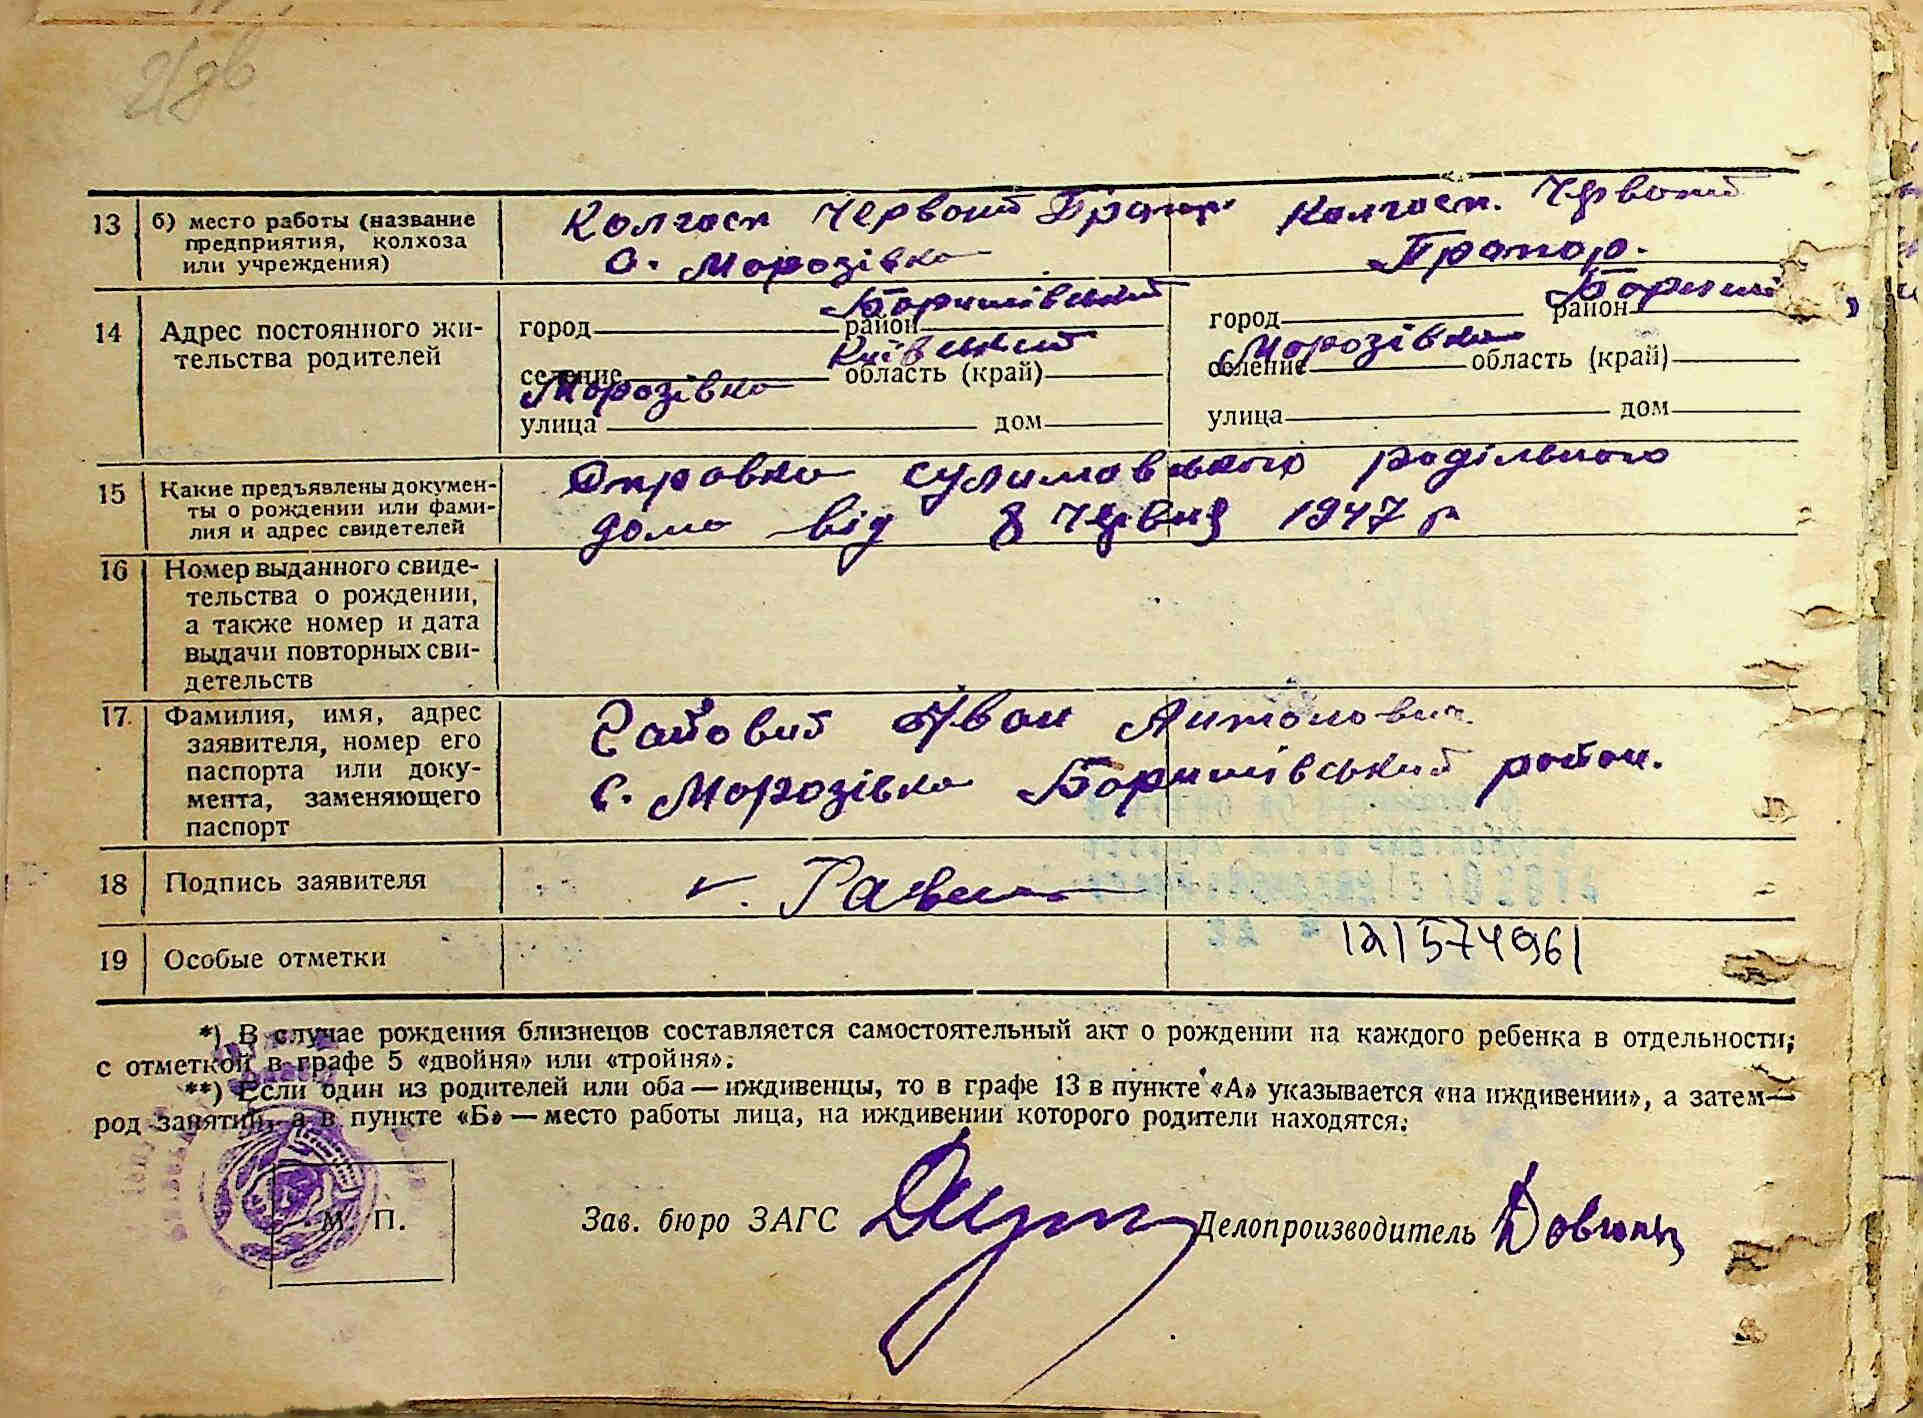 13 б) место работы (название предприятия, колхоза или учреждения)
Колгосп Червоний Прапор
с. Морозівка
Колгосп. Червоний
Прапор.
14 Адрес постоянного жи-
тельства родителей
город район Боришівський
селение Морозівка область (край) Київський
улица дом
город район Бориші
селение Морозівка область (край)
улица дом
15 Какие предъявлены докумен-
ты о рождении или фами-
лия и адрес свидетелей
Справка сулимовського родільного
дома від 8 червня 1947 р
16 Номер выданного свиде-
тельства о рождении,
а также номер и дата
выдачи повторных сви-
детельств
17. Фамилия, имя, адрес
заявителя, номер его
паспорта или доку-
мента, заменяющего
паспорт
Гайовий Іван Антонович.
с. Морозівка Боришівський район.
18 Подпись заявителя
19 Особые отметки
121574961
*) В случае рождения близнецов составляется самостоятельный акт о рождении на каждого ребенка в отдельности;
с отметкой в графе 5 «двойня» или «тройня».
**) Если один из родителей или оба — иждивенцы, то в графе 13 в пункте «А» указывается «на иждивении», а затем—
род занятий, а в пункте «Б» — место работы лица, на иждивении которого родители находятся.
М. П.
Зав. бюро ЗАГС Делопроизводитель